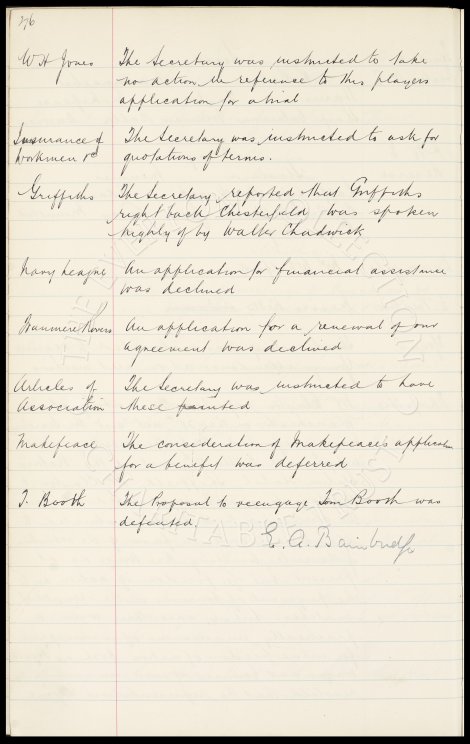 26
W H Jones The Secretary was instructed to take
no action in reference to this players
application for a trial
Insurance of The Secretary was instructed to ask for
workmen &c quotations of terms.
Griffiths The Secretary reported that Griffiths
right back Chesterfield was spoken
highly of by Walter Chadwick
Navy League An application for financial assistance
was declined
Tranmere Rovers An application for a renewal of our
agreement was declined
Articles of The Secretary was instructed to have
Association these printed
Makepeace The consideration of Makepeace's application
for a benefit was deferred
T. Booth The Proposal to reengage Tom Booth was
defeated.
E. A. Bainbridge